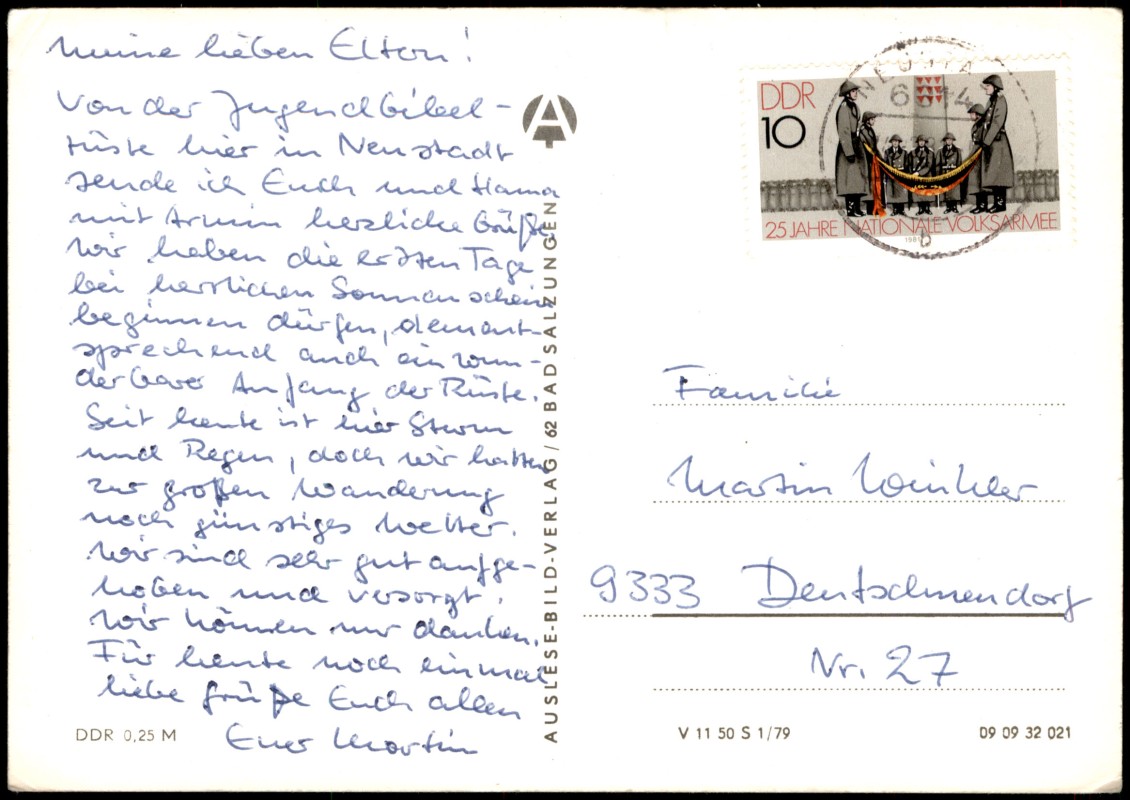 Meine lieben Eltern!
Von der Jugendbibel-
rüste hier in Neustadt
sende ich Euch und Hanna
mit Armin herzliche Grüße
Wir haben die ersten Tage
bei herrlichen Sonnenschein
beginnen dürfen, dement-
sprechend auch ein wun-
derbarer Anfang der Rüste.
Seit heute ist hier Sturm
und Regen, doch wir hatten
zur großen Wanderung
noch günstiges Wetter.
Wir sind sehr gut aufge-
hoben und versorgt.
Wir können nur danken.
Für heute noch einmal
liebe Grüße Euch allen
Euer Martin
DDR 0,25 M
A
AUSLESE-BILD-VERLAG / 62 BAD SALZUNGEN
DDR
10
25 JAHRE NATIONALE VOLKSARMEE
1981
b
Familie
Martin Winkler
9333 Deutschneudorf
Nr. 27
V 11 50 S 1/79
09 09 32 021